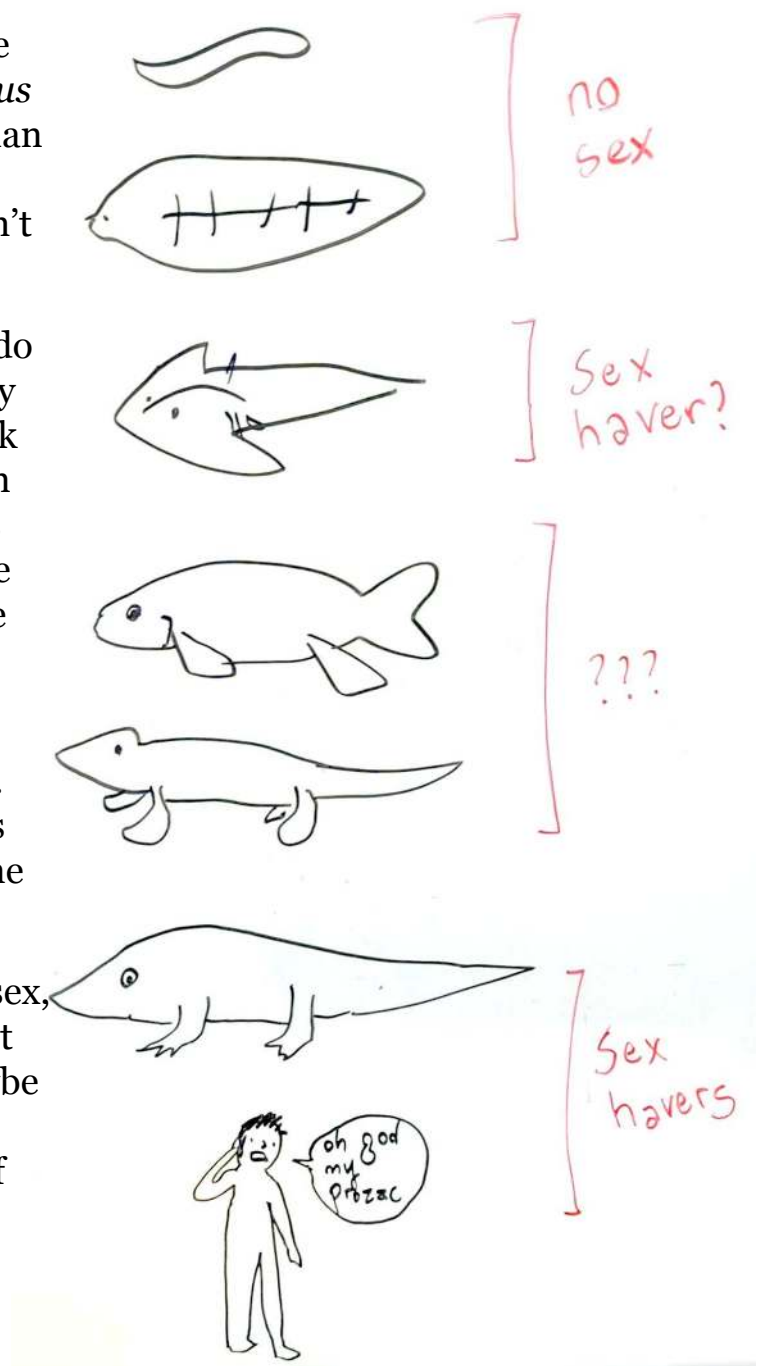 e
us
an
n't
do
y
k
n
e
e
s
ne
sex,
t
be
f
no
sex
Sex
haver?
???
Sex
havers
oh god
my
prozac